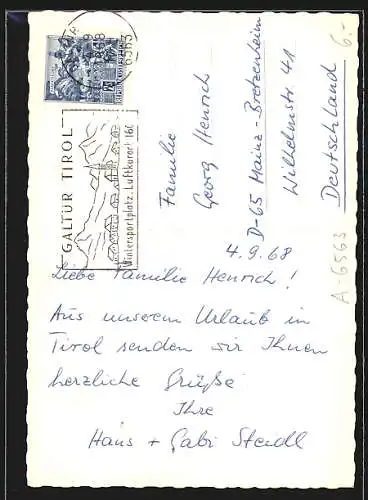 GALTÜR TIROL
Wintersportplatz, Luftkurort 160
6563
Familie
Georg Henrich
D-65 Mainz-Bretzenheim
Wilhelmstr 41
Deutschland
6.-
A-6563
4.9.68
Liebe Familie Henrich!
Aus unserem Urlaub in
Tirol senden wir Ihnen
herzliche Grüße
Ihre
Hans + Gabi Steidl